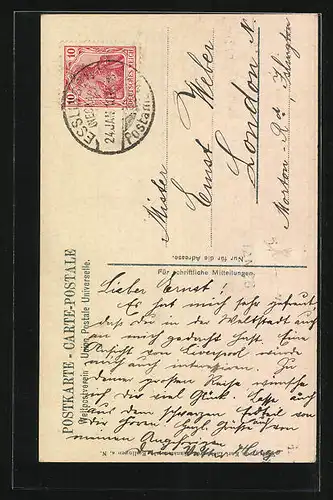 POSTKARTE - CARTE-POSTALE
Weltpostverein - Union Postale Universelle.
10 10
DEUTSCHES REICH
ESSL
24 JAN
Postamt
Mister
Ernst Weber
London N.
Morton-Rd Islington
Nur für die Adresse.
Für schriftliche Mitteilungen.
Lieber Ernest!
Es hat mich sehr gefreut
dass Du in der Weltstadt auch
an mich gedacht hast. Eine
Ansicht von Liverpool würde
mich auch interessieren. Zu
deiner großen Reise wünsche
ich dir viel Glück. Lasse auch
aus dem schwarzen Erdteil von
dir hören. Herzl. Grüsse auch von
meinen Angehörigen
Hugo